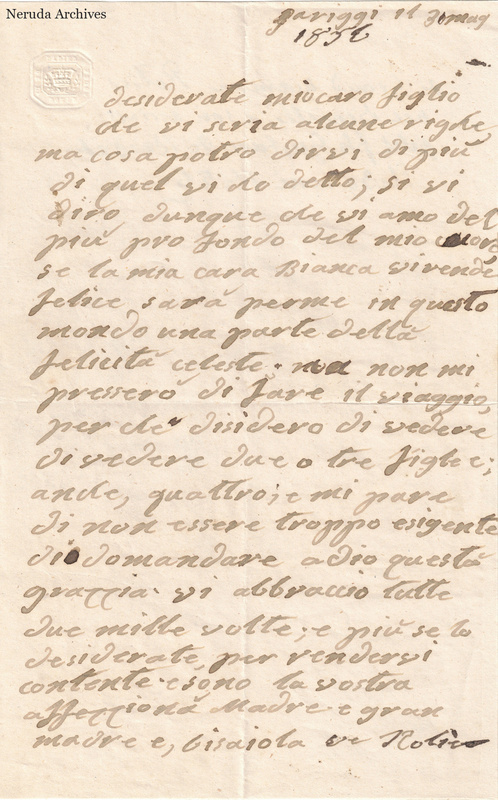 Neruda Archives
Pariggi il 30 mag
1856
desiderate mio caro figlio
de vi scria alcune righe
ma cosa potro dirvi di più
di quel vi do detto; si vi
diro dunque de vi amo del
più pro fondo del mio cuore
se la mia cara Bianca vi rende
felice sarà per me in questo
mondo una parte della
felicità celeste. non mi
presserò di fare il viaggio,
per de disidero di vedere
di vedere due o tre figlie;
ande, quattro; e mi pare
di non essere troppo esigente
di domandare a dio questa
grazzia. vi abbraccio tutte
due mille volte; e più se lo
desiderate, per rendervi
contente e sono la vostra
affezziona Madre e gran
madre e, bisaiola